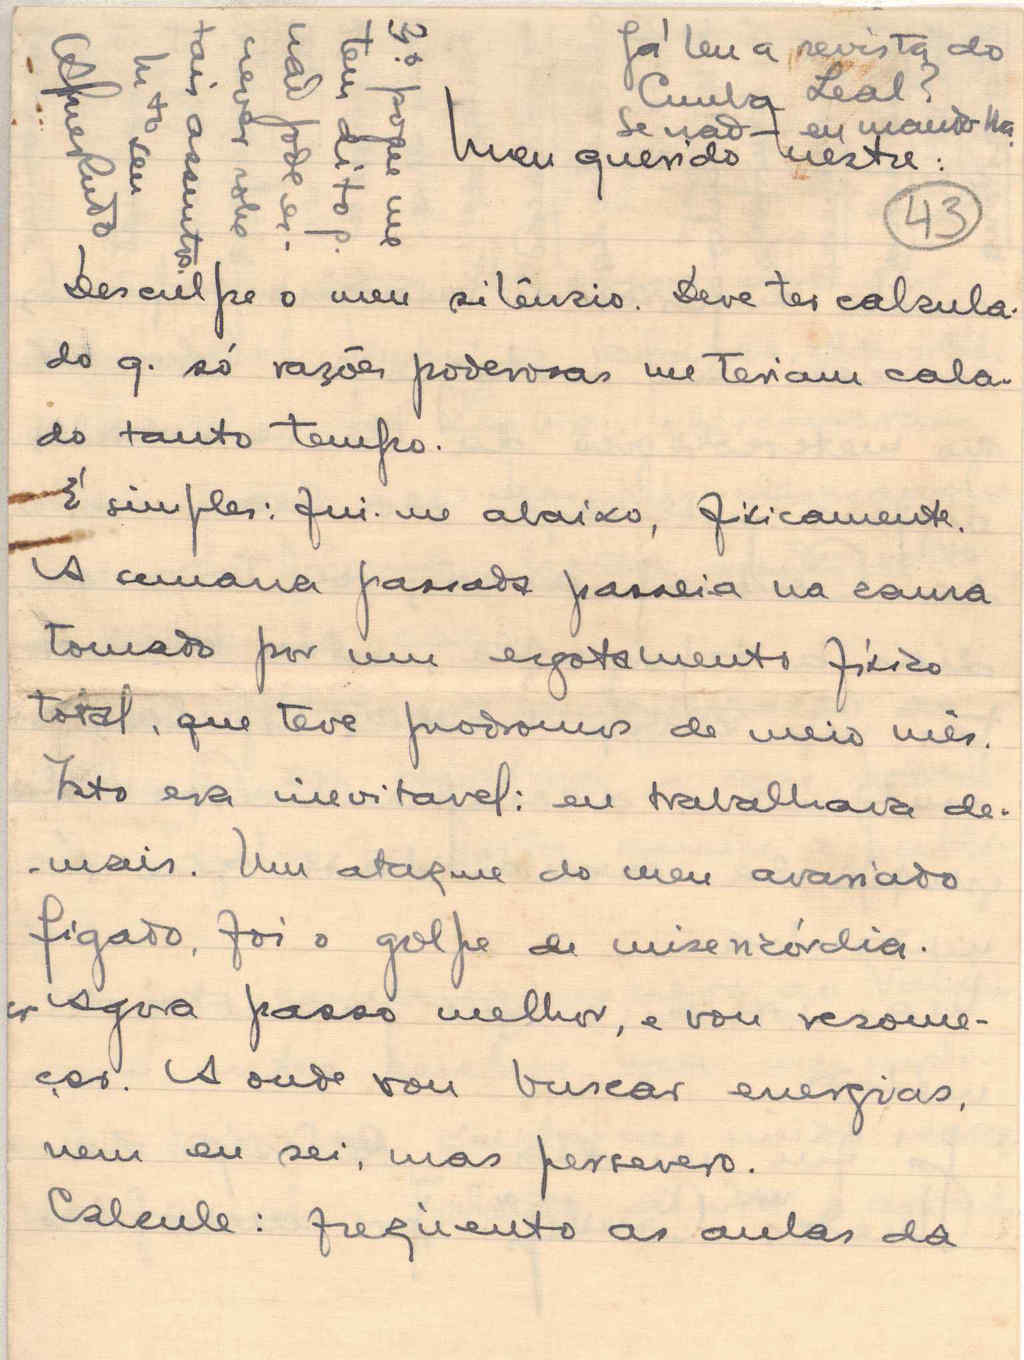 Já leu a revista do
Cunha Leal?
Se não — eu mando-lha.
Meu querido mestre:
43
Desculpe o meu silêncio. Deve ter calcula-
do q. só razões poderosas me teriam cala-
do tanto tempo.
É simples: fui-me abaixo, fisicamente.
A semana passada passei-a na cama
tomado por um esgotamento físico
total, que teve prodromos de meio mês.
Isto era inevitavel: eu trabalhava de-
-mais. Um ataque do meu avariado
fígado, foi o golpe de misericórdia.
Agora passo melhor, e vou recome-
çar. A onde vou buscar energias,
nem eu sei, mas persevero.
Calcule: freqüento as aulas da
3º porque me
tem dito q.
não pode es-
crever sobre
tais assuntos.
Mto seu